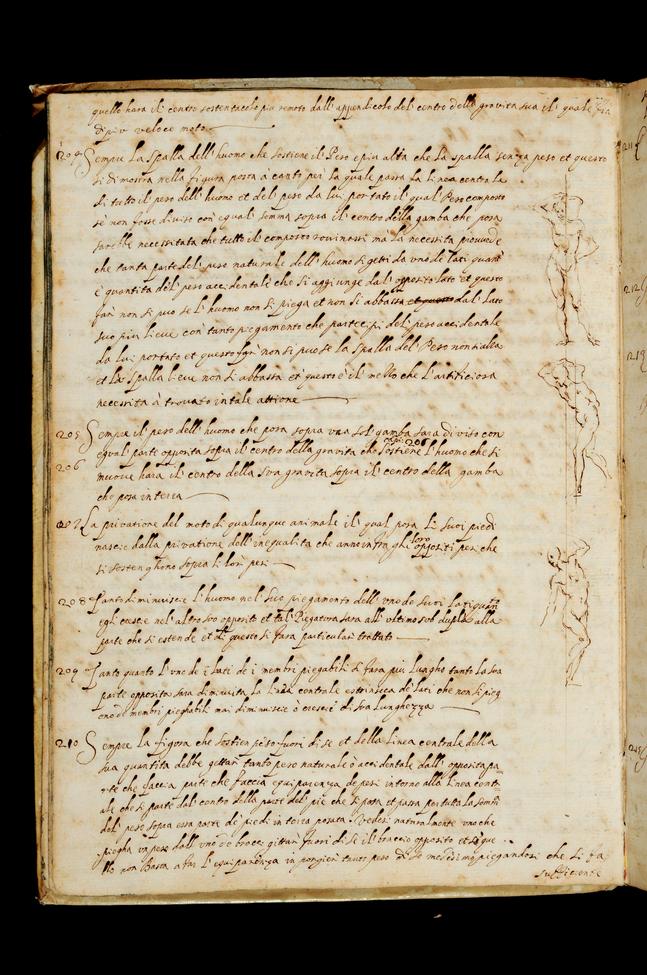 quello hara il centro sostentacolo piu remoto dall appendicolo del centro della gravita sua il quale
di piu veloce moto
204 Sempre la spalla dell huomo che sostiene il Peso e piu alta che la spalla senza peso et questo
si dimostra nella figura posta a canto per la quale passa la linea centrale
di tutto il peso dell huomo et del peso da lui portato il qual Peso composto
se non fosse diviso con equal somma sopra il centro della gamba che posa
sarebbe necessitato che tutto il composto rovinassi ma la necessita provede
che tanta parte del peso naturale dell huomo si getti da uno de lati quant
e quantita del peso accidentale che si aggiunge dall opposito lato et questo
far non si puo se l huomo non si piega et non si abbassa et questo dal lato
suo piu lieve con tanto piegamento che partecipi del peso accidentale
da lui portato et questo far non si puo se la spalla del Peso non si alza
et la spalla lieve non si abbassa et questo è il mezzo che l artificiosa
necessita à trovato in tale attione
205 Sempre il peso dell huomo che posa sopra una sol gamba sara diviso con
equal parte opposta sopra il centro della gravita che sostiene 206 L huomo che si
206 muove hara il centro della sua gravita sopra il centro della gamba
che posa in terra
207 La privatione del moto di qualunque animale il qual posa li suoi piedi
nascie dalla privatione dell inequalita che anno infra gli loro oppositi pesi che
si sostenghono sopra li lor pesi
208 Tanto diminuiscie l huomo nel suo piegamento dell uno de suoi lati quanto
egli crescie nel altro suo opposito et tal Piegatura sara all ultimo sub dupla alla
parte che si estende et di questo si fara particular trattato
209 Tanto quanto l uno de i lati de i membri piegabili si fara piu lungho tanto la sua
parte opposita sara diminuita La linea centrale estrinseca de lati che non si pieg
ono de membri pieghabili mai diminuiscie ò crescie di sua lunghezza
210 Sempre la figura che sostien peso fuori di se et della linea centrale della
sua quantita debbe gittar tanto peso naturale ò accidentale dall opposita pa
rte che faccia parte che faccia equiparenza de pesi intorno alla linea centr
ale che si parte dal centro della parte del pie che si posa et passa per tutta la somma
del peso sopra essa parte de piedi in terra posata. Vedesi naturalmente uno che
piegha un peso dall uno de bracci gittar fuori di se il braccio opposito et se que
llo non Basta a far l equiparenza vi porgier tanto peso di se medesimo piegandosi che si fa
sufficiente